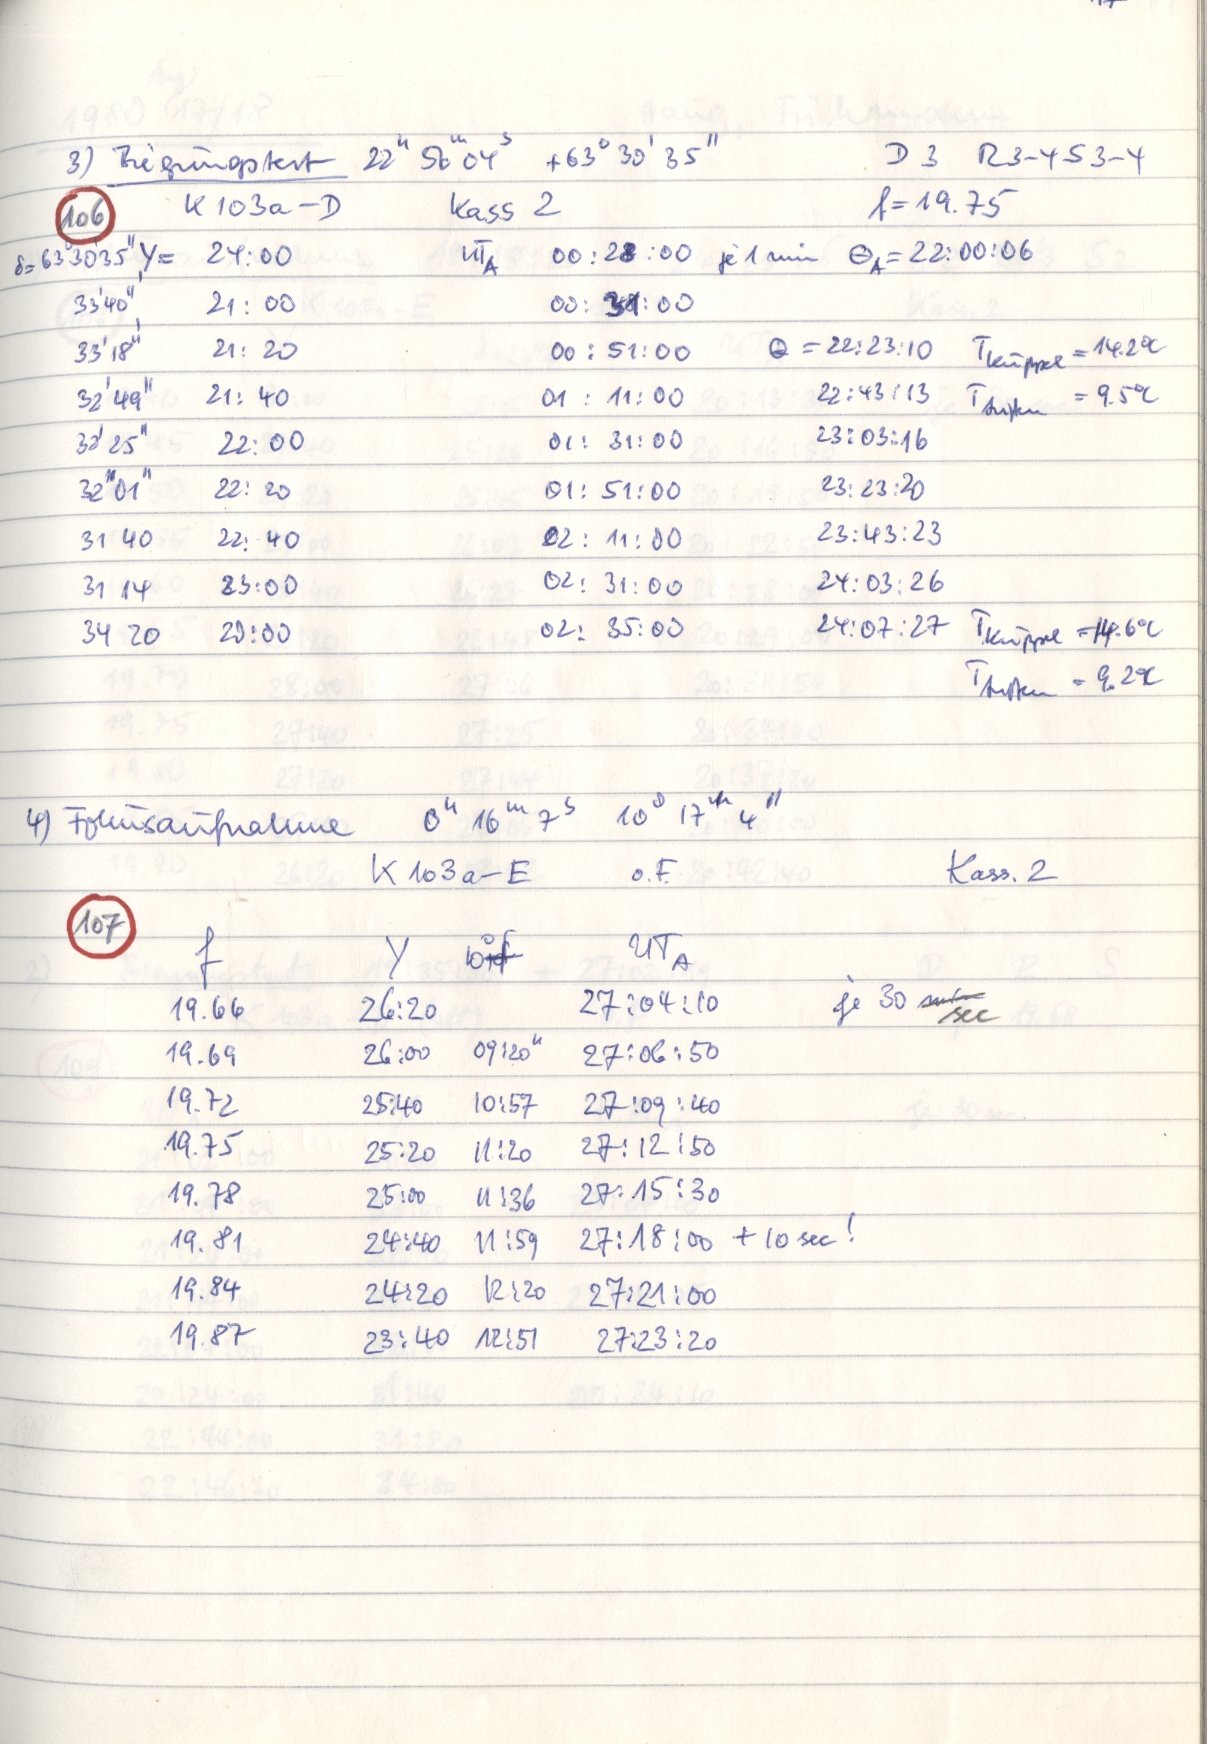 3) Biegungstest 22ʰ 50ᵐ 04ˢ +63° 30' 35" D 3 R3-4 S3-4
106 K 103a-D Kass 2 f = 19.75
δ= 63°30'35" Y= 24:00 UT_A 00:28:00 je 1 min Θ_A = 22:00:06
33'40" 21:00 00:31:00
33'18" 21:20 00:51:00 Θ = 22:23:10 T_Kuppel = 14.2°C
32'49" 21:40 01:11:00 22:43:13 T_außen = 9.5°C
32'25" 22:00 01:31:00 23:03:16
32'01" 22:20 01:51:00 23:23:20
31 40 22:40 02:11:00 23:43:23
31 14 23:00 02:31:00 24:03:26
34 20 20:00 02:35:00 24:07:27 T_Kuppel = 14.6°C
T_außen = 9.2°C
4) Fokusaufnahme 0ʰ 16ᵐ 7ˢ 10° 17ᵐ 4"
K 103a-E o.F. Kass. 2
107
f Y 10° UT_A
19.66 26:20 27:04:10 je 30 min sec
19.69 26:00 09:20" 27:06:50
19.72 25:40 10:57 27:09:40
19.75 25:20 11:20 27:12:50
19.78 25:00 11:36 27:15:30
19.81 24:40 11:59 27:18:00 + 10 sec!
19.84 24:20 12:20 27:21:00
19.87 23:40 12:51 27:23:20